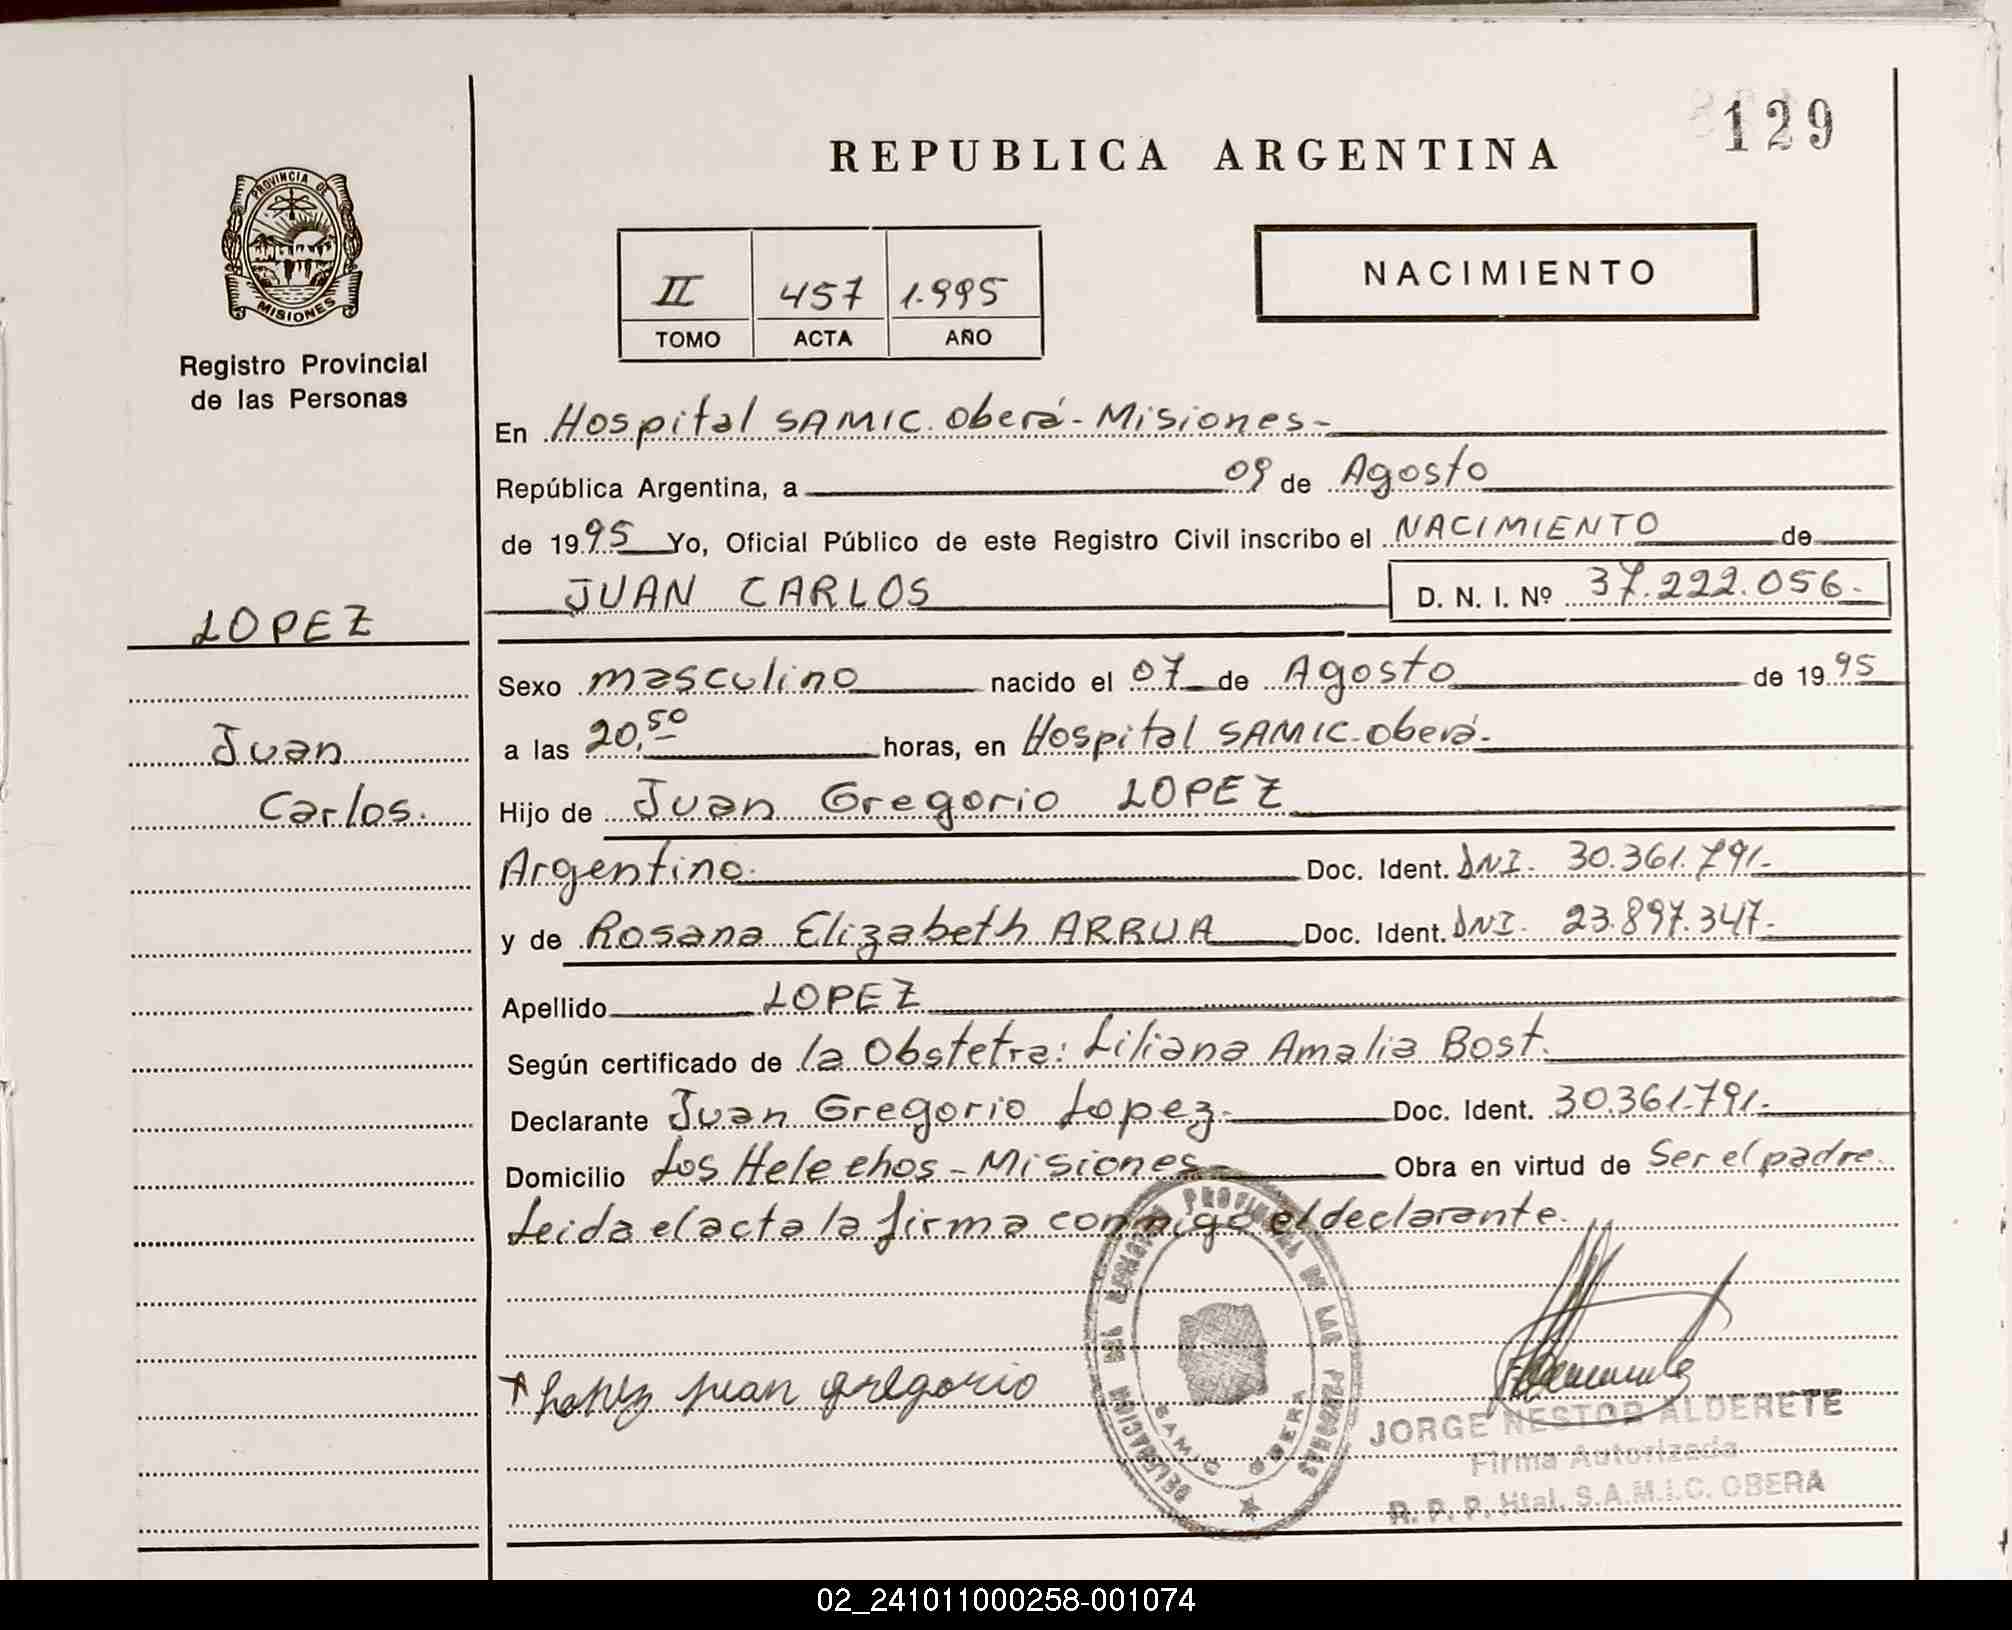 129
REPUBLICA ARGENTINA
PROVINCIA DE
MISIONES
Registro Provincial
de las Personas
NACIMIENTO
II 457 1.995
TOMO ACTA AÑO
En Hospital SAMIC. Oberá - Misiones -
República Argentina, a 09 de Agosto
de 1995 Yo, Oficial Público de este Registro Civil inscribo el NACIMIENTO de
JUAN CARLOS D. N. I. Nº 37.222.056.-
LOPEZ
Juan
Carlos.
Sexo masculino nacido el 07 de Agosto de 1995
a las 20.50 horas, en Hospital SAMIC. Oberá.
Hijo de Juan Gregorio LOPEZ
Argentino. Doc. Ident. DNI. 30.361.791.-
y de Rosana Elizabeth ARRUA Doc. Ident. DNI. 23.897.347.-
Apellido LOPEZ
Según certificado de la Obstetra: Liliana Amalia Bost.
Declarante Juan Gregorio Lopez.- Doc. Ident. 30.361.791.-
Domicilio Los Helechos - Misiones - Obra en virtud de Ser el padre.
Leida el acta la firma conmigo el declarante.
Lopez juan gregorio
DELEGACION DEL REGISTRO PROVINCIAL DE LAS PERSONAS
SAMIC OBERA
JORGE NESTOR ALDERETE
Firma Autorizada
R. P. P. Htal. S.A.M.I.C. OBERA
02_241011000258-001074